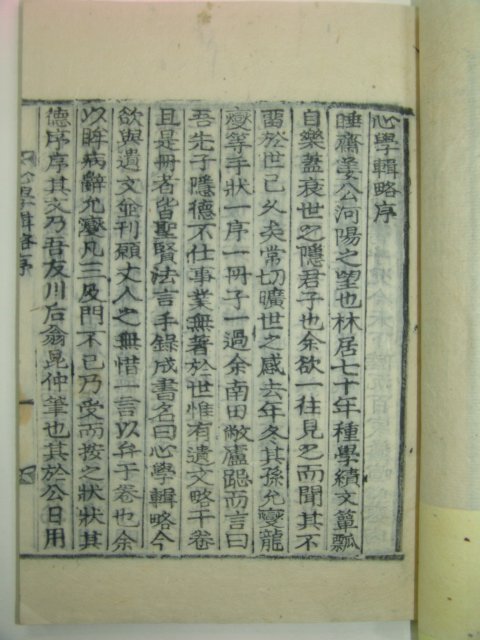 心學輯略序
睡齋姜公河陽之望也林居七十年種學績文簞瓢
自樂蓋衰世之隱君子也余欲一往見之而聞其不
留於世已久矣常切曠世之感去年冬其孫允燮龍
燮等手狀一序一冊子一過余南田敝廬跽而言曰
吾先子隱德不仕事業無著於世惟有遺文略干卷
且是冊者皆聖賢法言手錄成書名曰心學輯略今
欲與遺文並刊願丈人之無惜一言以弁于卷也余
以眸病辭允燮凡三及門不已乃受而按之狀狀其
德序序其文乃吾友川后翁昆仲筆也其於公日用
心學輯略序
一